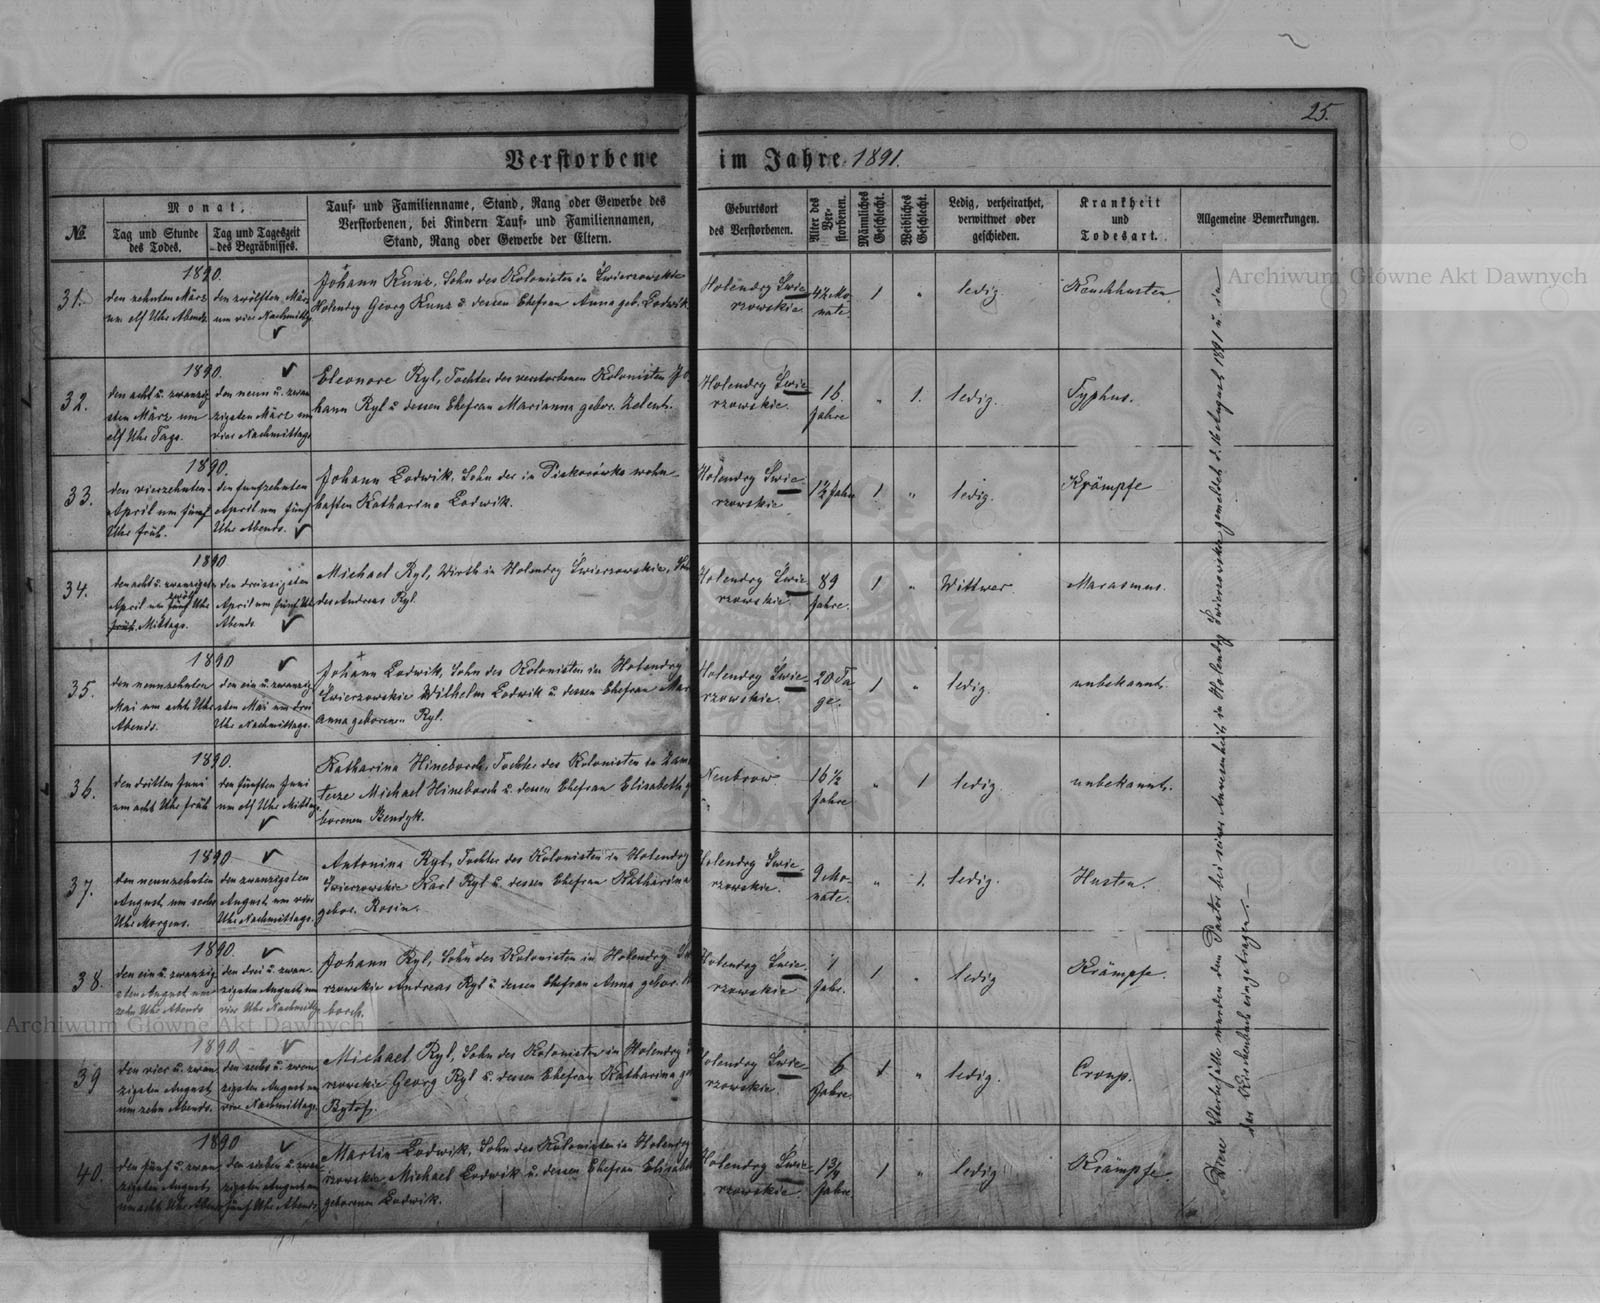 25.
Verstorbene im Jahre 1891.
№
Monat,
Tag und Stunde
des Todes.
Tag und Tageszeit
des Begräbnisses.
Tauf- und Familienname, Stand, Rang oder Gewerbe des
Verstorbenen, bei Kindern Tauf- und Familiennamen,
Stand, Rang oder Gewerbe der Eltern.
Geburtsort
des Verstorbenen.
Alter des
Ver-
storbenen.
Männliches
Geschlecht.
Weibliches
Geschlecht.
Ledig, verheirathet,
verwittwet oder
geschieden.
Krankheit
und
Todesart.
Allgemeine Bemerkungen.
31.
1890.
den zehnten März
um elf Uhr Abends
den zwölften März
um vier Nachmittg.
Johann Kunz, Sohn des Kolonisten in Świerzowskie
Holendry Georg Kunz u dessen Ehefrau Anna geb. Lodwik
Holendry Świe-
rzowskie
4½ Mo-
nate.
1
"
ledig
Keuchhusten
32.
1890.
den acht u. zwanzig-
sten März um
elf Uhr Tags.
den neun u. zwan
zigsten März um
vier Nachmittags
Eleonore Ryl, Tochter des verstorbenen Kolonisten Jo
hann Ryl u dessen Ehefrau Marianna gebor. Zelent.
Holendry Świe-
rzowskie.
16.
Jahre
"
1.
ledig.
Typhus.
33.
1890.
den vierzehnten
April um fünf
Uhr früh.
den funfzehnten
April um fünf
Uhr Abends.
Johann Lodwik, Sohn der in Piskorówka wohn-
haften Katharina Lodwik.
Holendry Świe-
rzowskie
1½ Jahr
1
"
ledig.
Krämpfe
34.
1890
den acht u. zwanzigsten
April um zwölf Uhr
Mittags.
den dreissigsten
April um fünf Uhr
Abends
Michael Ryl, Wirth in Holendry Świerzowskie, Sohn
des Andreas Ryl.
Holendry Świe-
rzowskie.
89
Jahre.
1
"
Wittwer
Marasmus.
35.
1890
den neunzehnten
Mai um acht Uhr
Abends.
den ein u. zwanzig
sten Mai um drei
Uhr Nachmittags.
Johann Lodwik, Sohn des Kolonisten in Holendry
Świerzowskie Wilhelm Lodwik u. dessen Ehefrau Mari
anna geborenen Ryl.
Holendry Świe-
rzowskie.
20 Ta-
ge.
1
"
ledig.
unbekannt.
36.
1890.
den dritten Juni
um acht Uhr früh
den fünften Juni
um elf Uhr Mittag
Katharina Hineborch, Tochter des Kolonisten in Zam
Michael Hineborch u. dessen Ehefrau Elisabeth g
borenen Bendyk.
Neubrow
16½
Jahre
"
1
ledig.
unbekannt.
37.
1890
den neunzehnten
August um sechs
Uhr Morgens.
den zwanzigsten
August um vier
Uhr Nachmittags.
Antonina Ryl, Tochter des Kolonisten in Holendry
Świerzowskie Karl Ryl u. dessen Ehefrau Katharina
gebor. Rosin.
Holendry Świe-
rzowskie.
9 Mo-
nate.
"
1.
ledig.
Husten.
38.
1890.
den ein u. zwanzig
sten August um
zehn Uhr Abends
den drei u. zwan-
zigsten August um
vier Uhr Nachmittg
Johann Ryl, Sohn des Kolonisten in Holendry Św
rzowskie Andreas Ryl u dessen Ehefrau Anna gebor. H
borch.
Holendry Świe-
rzowskie
1
Jahr.
1
"
ledig
Krämpfe.
39
1890
den vier u. zwan
zigsten August
um zehn Abends.
den sechs u. zwan
zigsten August um
vier Nachmittags.
Michael Ryl, Sohn des Kolonisten in Holendry
rzowskie Georg Ryl u. dessen Ehefrau Katharina ge
Bytof.
Holendry Świe-
rzowskie.
6
Jahre.
1
"
ledig.
Croup.
40.
1890
den fünf u. zwan
zigsten August
um acht Uhr Abend
den sieben u. zwan
zigsten August um
fünf Uhr Abends.
Martin Lodwik, Sohn des Kolonisten in Holendry
rzowskie, Michael Lodwik u. dessen Ehefrau Elisabeth
geborenen Lodwik.
Holendry Świe-
rzowskie.
1¾
Jahre
1
"
ledig
Krämpfe.
Diese Sterbefälle wurden dem Pastor bei seiner Anwesenheit in Holendry Świerzowskie gemeldet d. August 1891 u. in
das Kirchenbuch eingetragen.
Archiwum Główne Akt Dawnych
Archiwum Główne Akt Dawnych